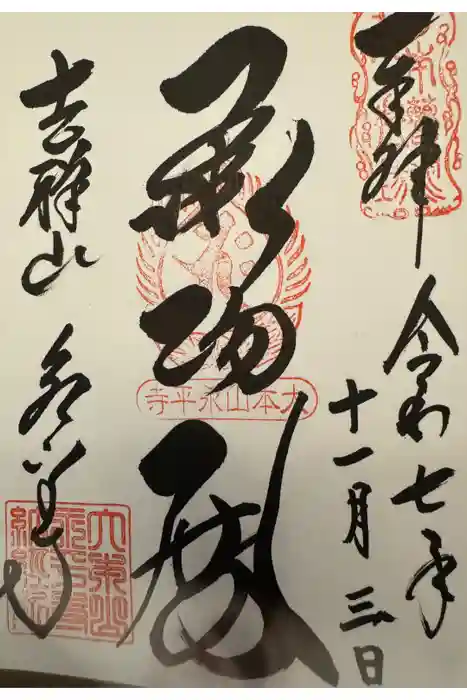 奉拝
令和七年
十一月三日
承陽殿
大本山永平寺
吉祥山
永平寺